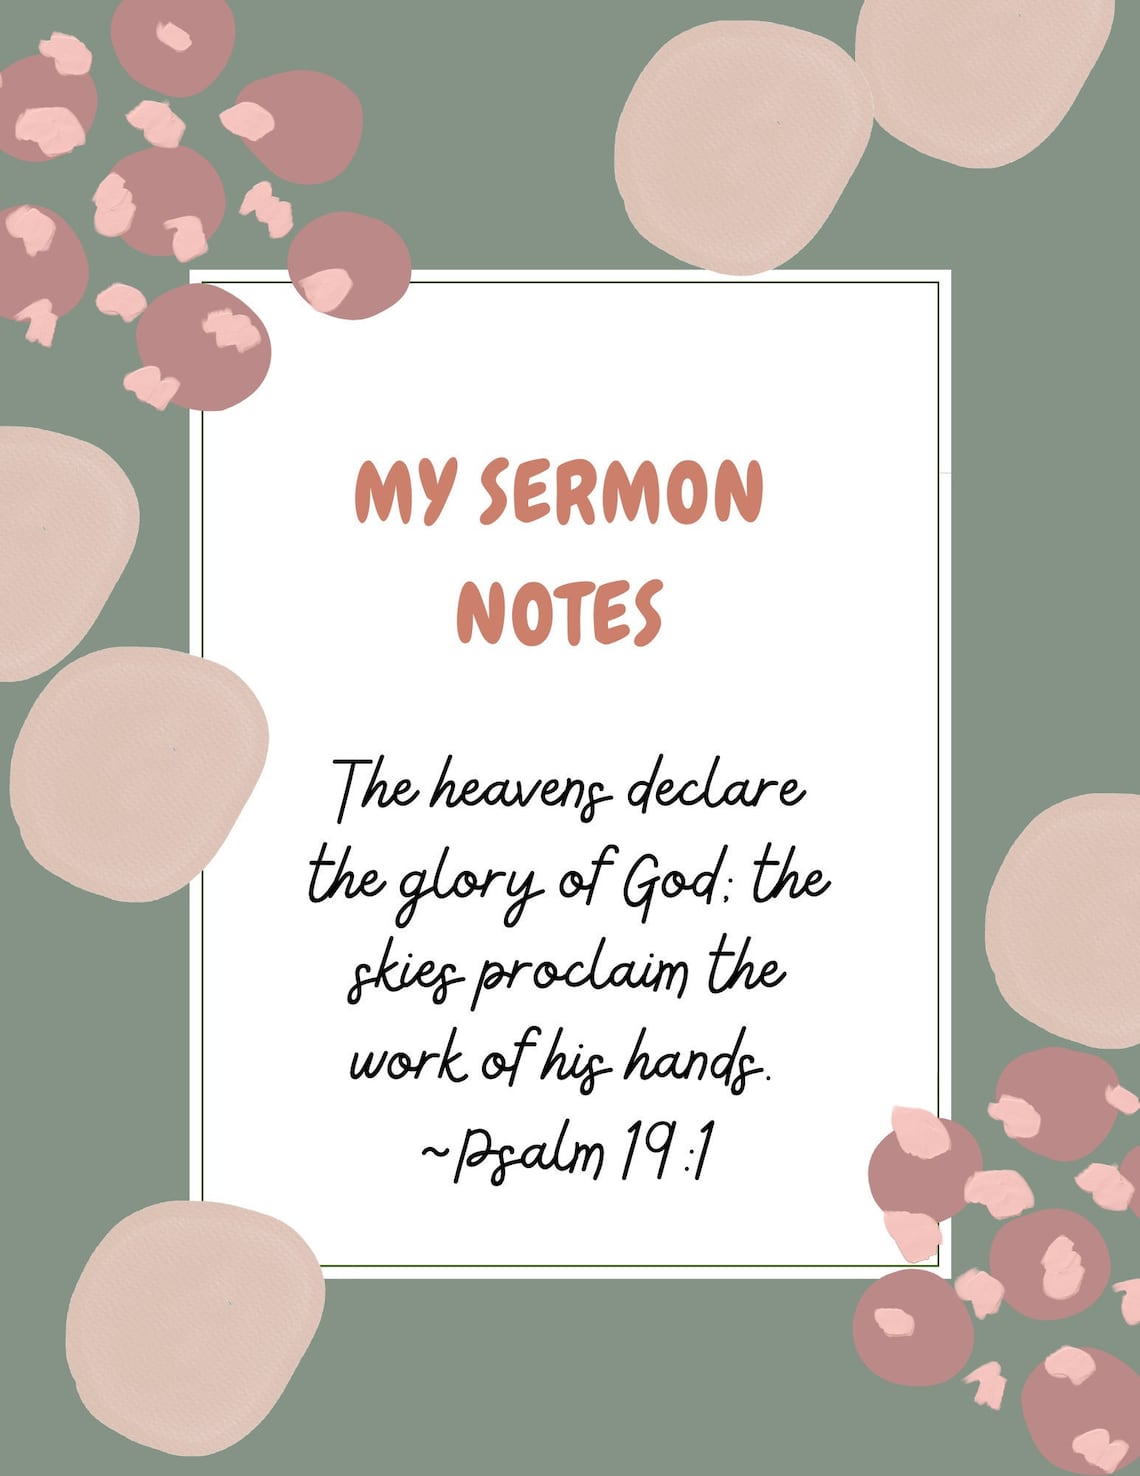 MY SERMON
NOTES
The heavens declare
the glory of God; the
skies proclaim the
work of his hands.
~Psalm 19:1